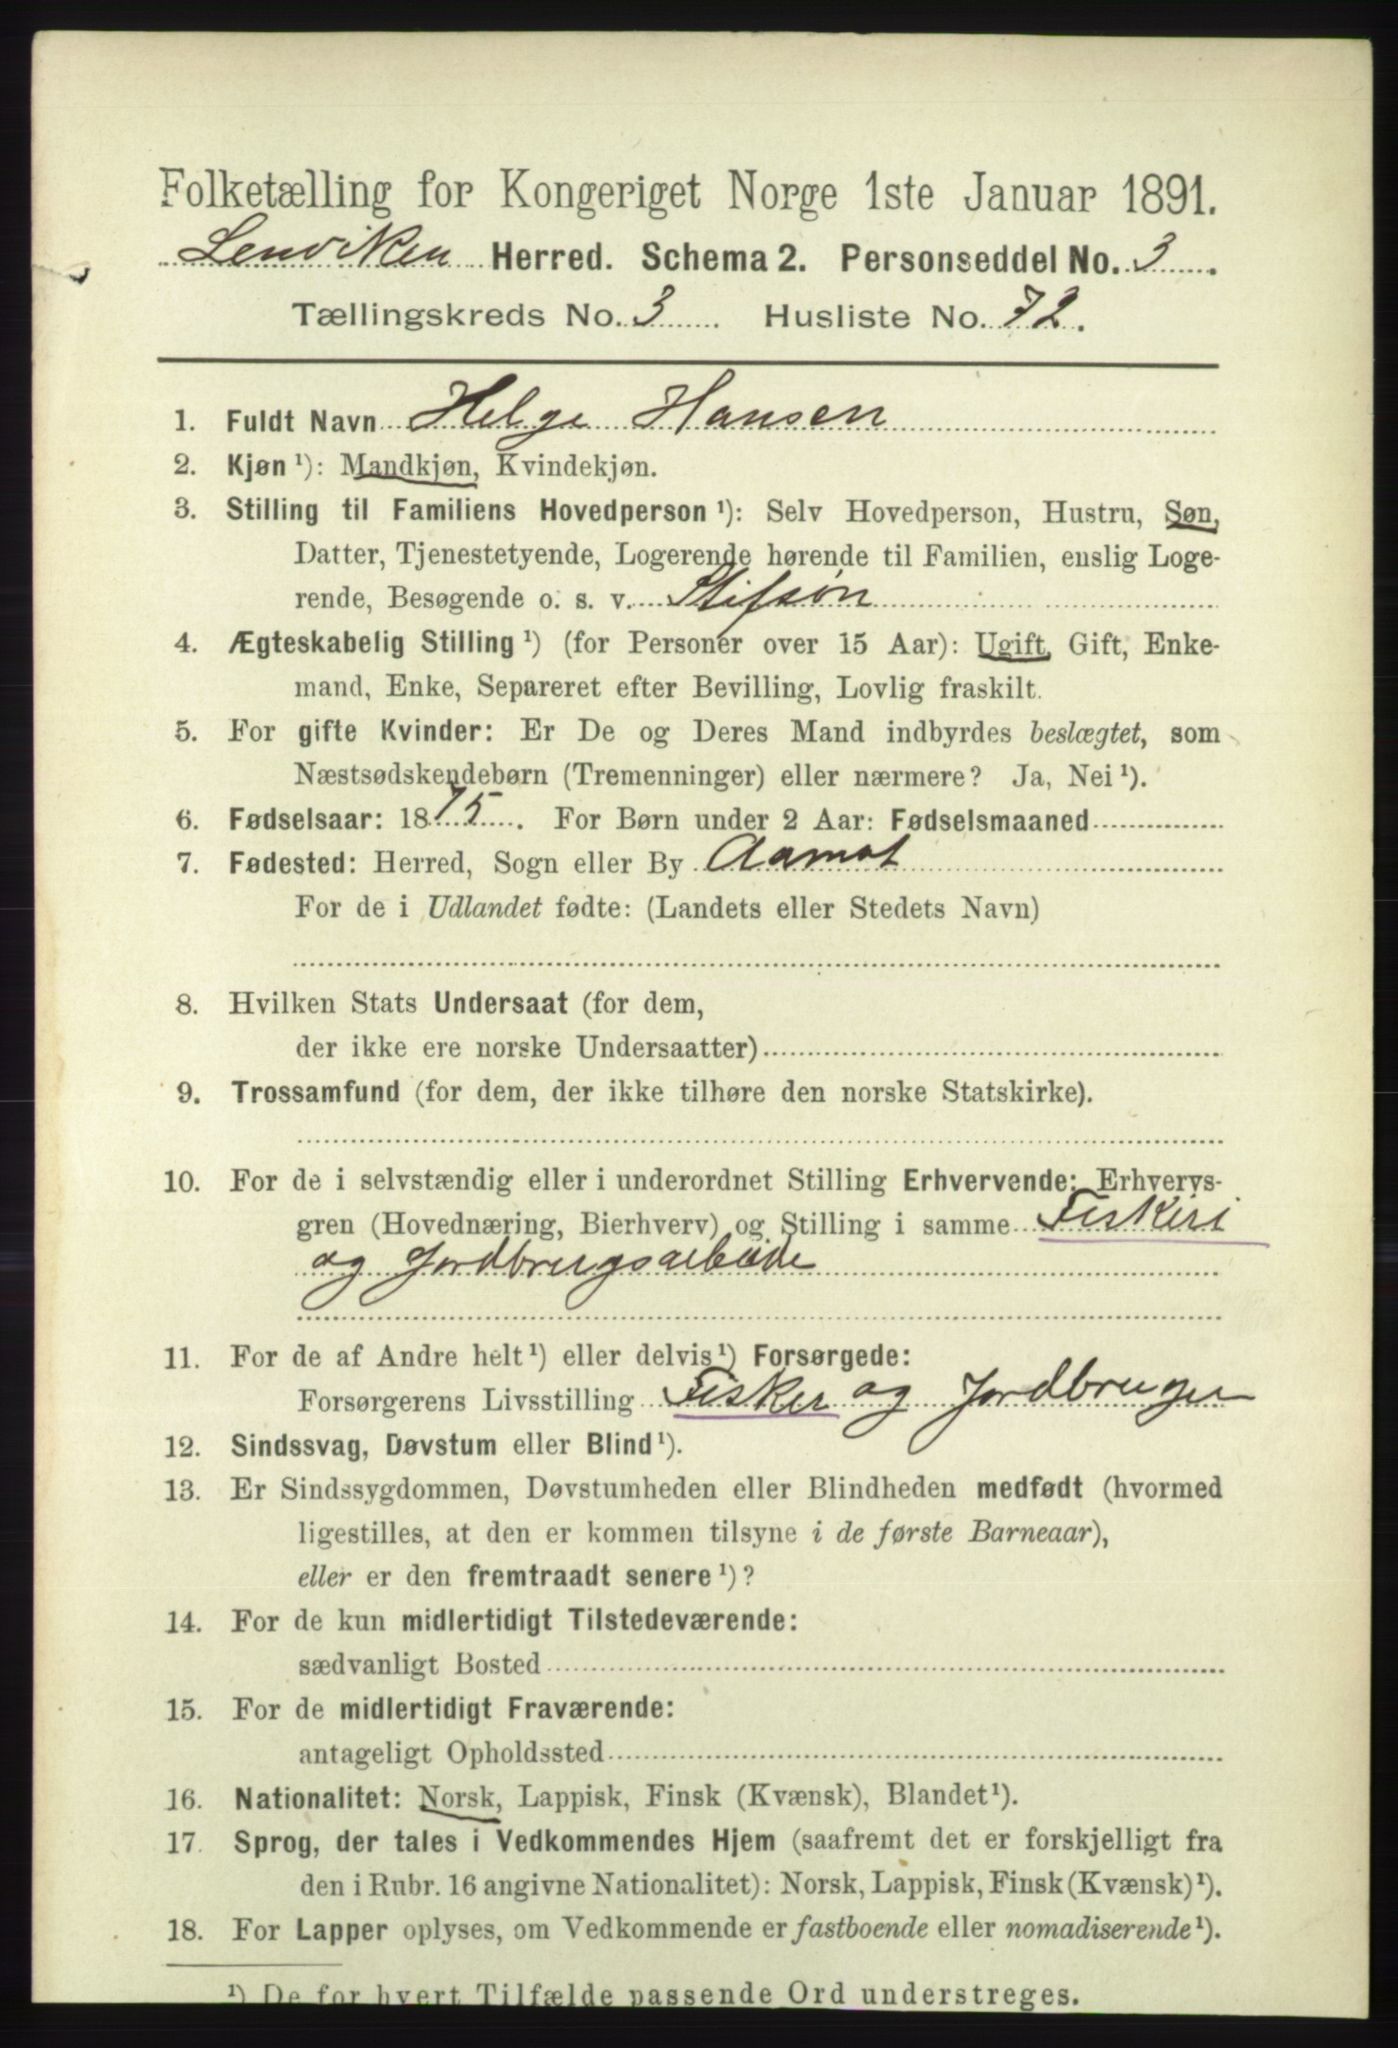 Folketælling for Kongeriget Norge 1ste Januar 1891.
Lenviken Herred. Schema 2. Personseddel No. 3.
Tællingskreds No. 3 Husliste No. 72.
1. Fuldt Navn Helge Hansen
2. Kjøn ¹): Mandkjøn, Kvindekjøn.
3. Stilling til Familiens Hovedperson ¹): Selv Hovedperson, Hustru, Søn,
Datter, Tjenestetyende, Logerende hørende til Familien, enslig Loge-
rende, Besøgende o. s. v. Stifsøn
4. Ægteskabelig Stilling ¹) (for Personer over 15 Aar): Ugift, Gift, Enke-
mand, Enke, Separeret efter Bevilling, Lovlig fraskilt.
5. For gifte Kvinder: Er De og Deres Mand indbyrdes beslægtet, som
Næstsødskendebørn (Tremenninger) eller nærmere? Ja, Nei ¹).
6. Fødselsaar: 1875. For Børn under 2 Aar: Fødselsmaaned
7. Fødested: Herred, Sogn eller By Aamot
For de i Udlandet fødte: (Landets eller Stedets Navn)
8. Hvilken Stats Undersaat (for dem,
der ikke ere norske Undersaatter)
9. Trossamfund (for dem, der ikke tilhøre den norske Statskirke).
10. For de i selvstændig eller i underordnet Stilling Erhvervende: Erhvervs-
gren (Hovednæring, Bierhverv) og Stilling i samme Fiskeri
og Jordbrugsarbeide
11. For de af Andre helt ¹) eller delvis ¹) Forsørgede:
Forsørgerens Livsstilling Fisker og Jordbruger
12. Sindssvag, Døvstum eller Blind ¹).
13. Er Sindssygdommen, Døvstumheden eller Blindheden medfødt (hvormed
ligestilles, at den er kommen tilsyne i de første Barneaar),
eller er den fremtraadt senere ¹)?
14. For de kun midlertidigt Tilstedeværende:
sædvanligt Bosted
15. For de midlertidigt Fraværende:
antageligt Opholdssted
16. Nationalitet: Norsk, Lappisk, Finsk (Kvænsk), Blandet ¹).
17. Sprog, der tales i Vedkommendes Hjem (saafremt det er forskjelligt fra
den i Rubr. 16 angivne Nationalitet): Norsk, Lappisk, Finsk (Kvænsk) ¹).
18. For Lapper oplyses, om Vedkommende er fastboende eller nomadiserende ¹).
¹) De for hvert Tilfælde passende Ord understreges.